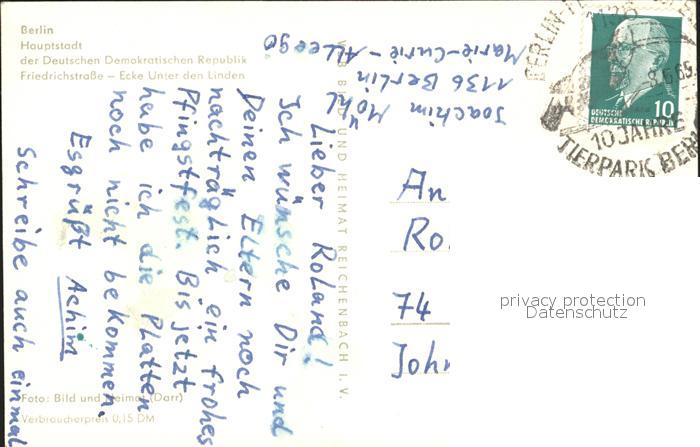 Berlin
Hauptstadt
der Deutschen Demokratischen Republik
Friedrichstraße – Ecke Unter den Linden
Joachim Möhl
1136 Berlin
Marie-Curie-Allee 90
Lieber Roland!
Ich wünsche Dir und
Deinen Eltern noch
nachträglich ein frohes
Pfingstfest. Bis jetzt
habe ich die Platten
noch nicht bekommen.
Es grüßt Achim
Schreibe auch einmal
BILD UND HEIMAT REICHENBACH I. V.
An
Ro
74
Joh
privacy protection
Datenschutz
10
DEUTSCHE
DEMOKRATISCHE REPUBLIK
1136
BERLIN
10 JAHRE
TIERPARK BER
Foto: Bild und Heimat (Darr)
Verbraucherpreis 0,15 DM